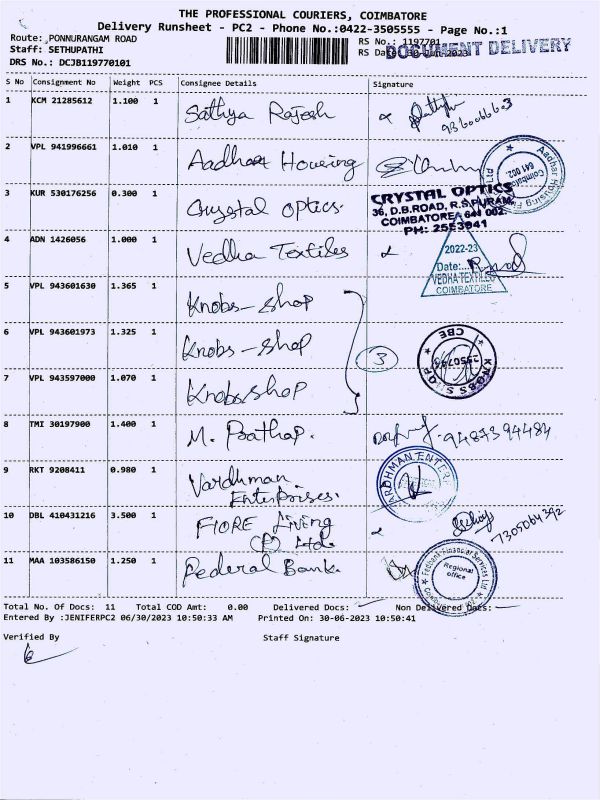 THE PROFESSIONAL COURIERS, COIMBATORE
Delivery Runsheet - PC2 - Phone No.:0422-3505555 - Page No.:1
Route: PONNURANGAM ROAD
Staff: SETHUPATHI
DRS No.: DCJB119770101
RS No.: 1197701
RS Date: 30-Jun-2023
DOCUMENT DELIVERY
S No Consignment No Weight PCS Consignee Details Signature
1 KCM 21285612 1.100 1 Sathya Rajesh
9360066603
2 VPL 941996661 1.010 1 Aadhar Housing
Aadhar Housing
Coimbatore
641 002
3 KUR 530176256 0.300 1 Crystal Optics.
CRYSTAL OPTICS
36, D.B.ROAD, R.S.PURAM,
COIMBATORE 641 002.
PH: 2553941
4 ADN 1426056 1.000 1 Vedha Textiles
2022-23
Date:
VEDHA TEXTILES
COIMBATORE
5 VPL 943601630 1.365 1 Knobs-shop
6 VPL 943601973 1.325 1 Knobs-shop
3
KNOBS SHOP
CBE
7 VPL 943597000 1.070 1 Knobs shop
8 TMI 30197900 1.400 1 M. Prathap.
9487394484
9 RKT 9208411 0.980 1 Vardhman
Enterprises.
VARDHMAN ENTER
10 DBL 410431216 3.500 1 FIORE Living
(P) Ltd.
7305064392
11 MAA 103586150 1.250 1 Federal Bank.
Fedbank Financial Services Ltd
Regional
Office
Total No. Of Docs: 11 Total COD Amt: 0.00 Delivered Docs: Non Delivered Docs:
Entered By :JENIFERPC2 06/30/2023 10:50:33 AM Printed On: 30-06-2023 10:50:41
Verified By Staff Signature